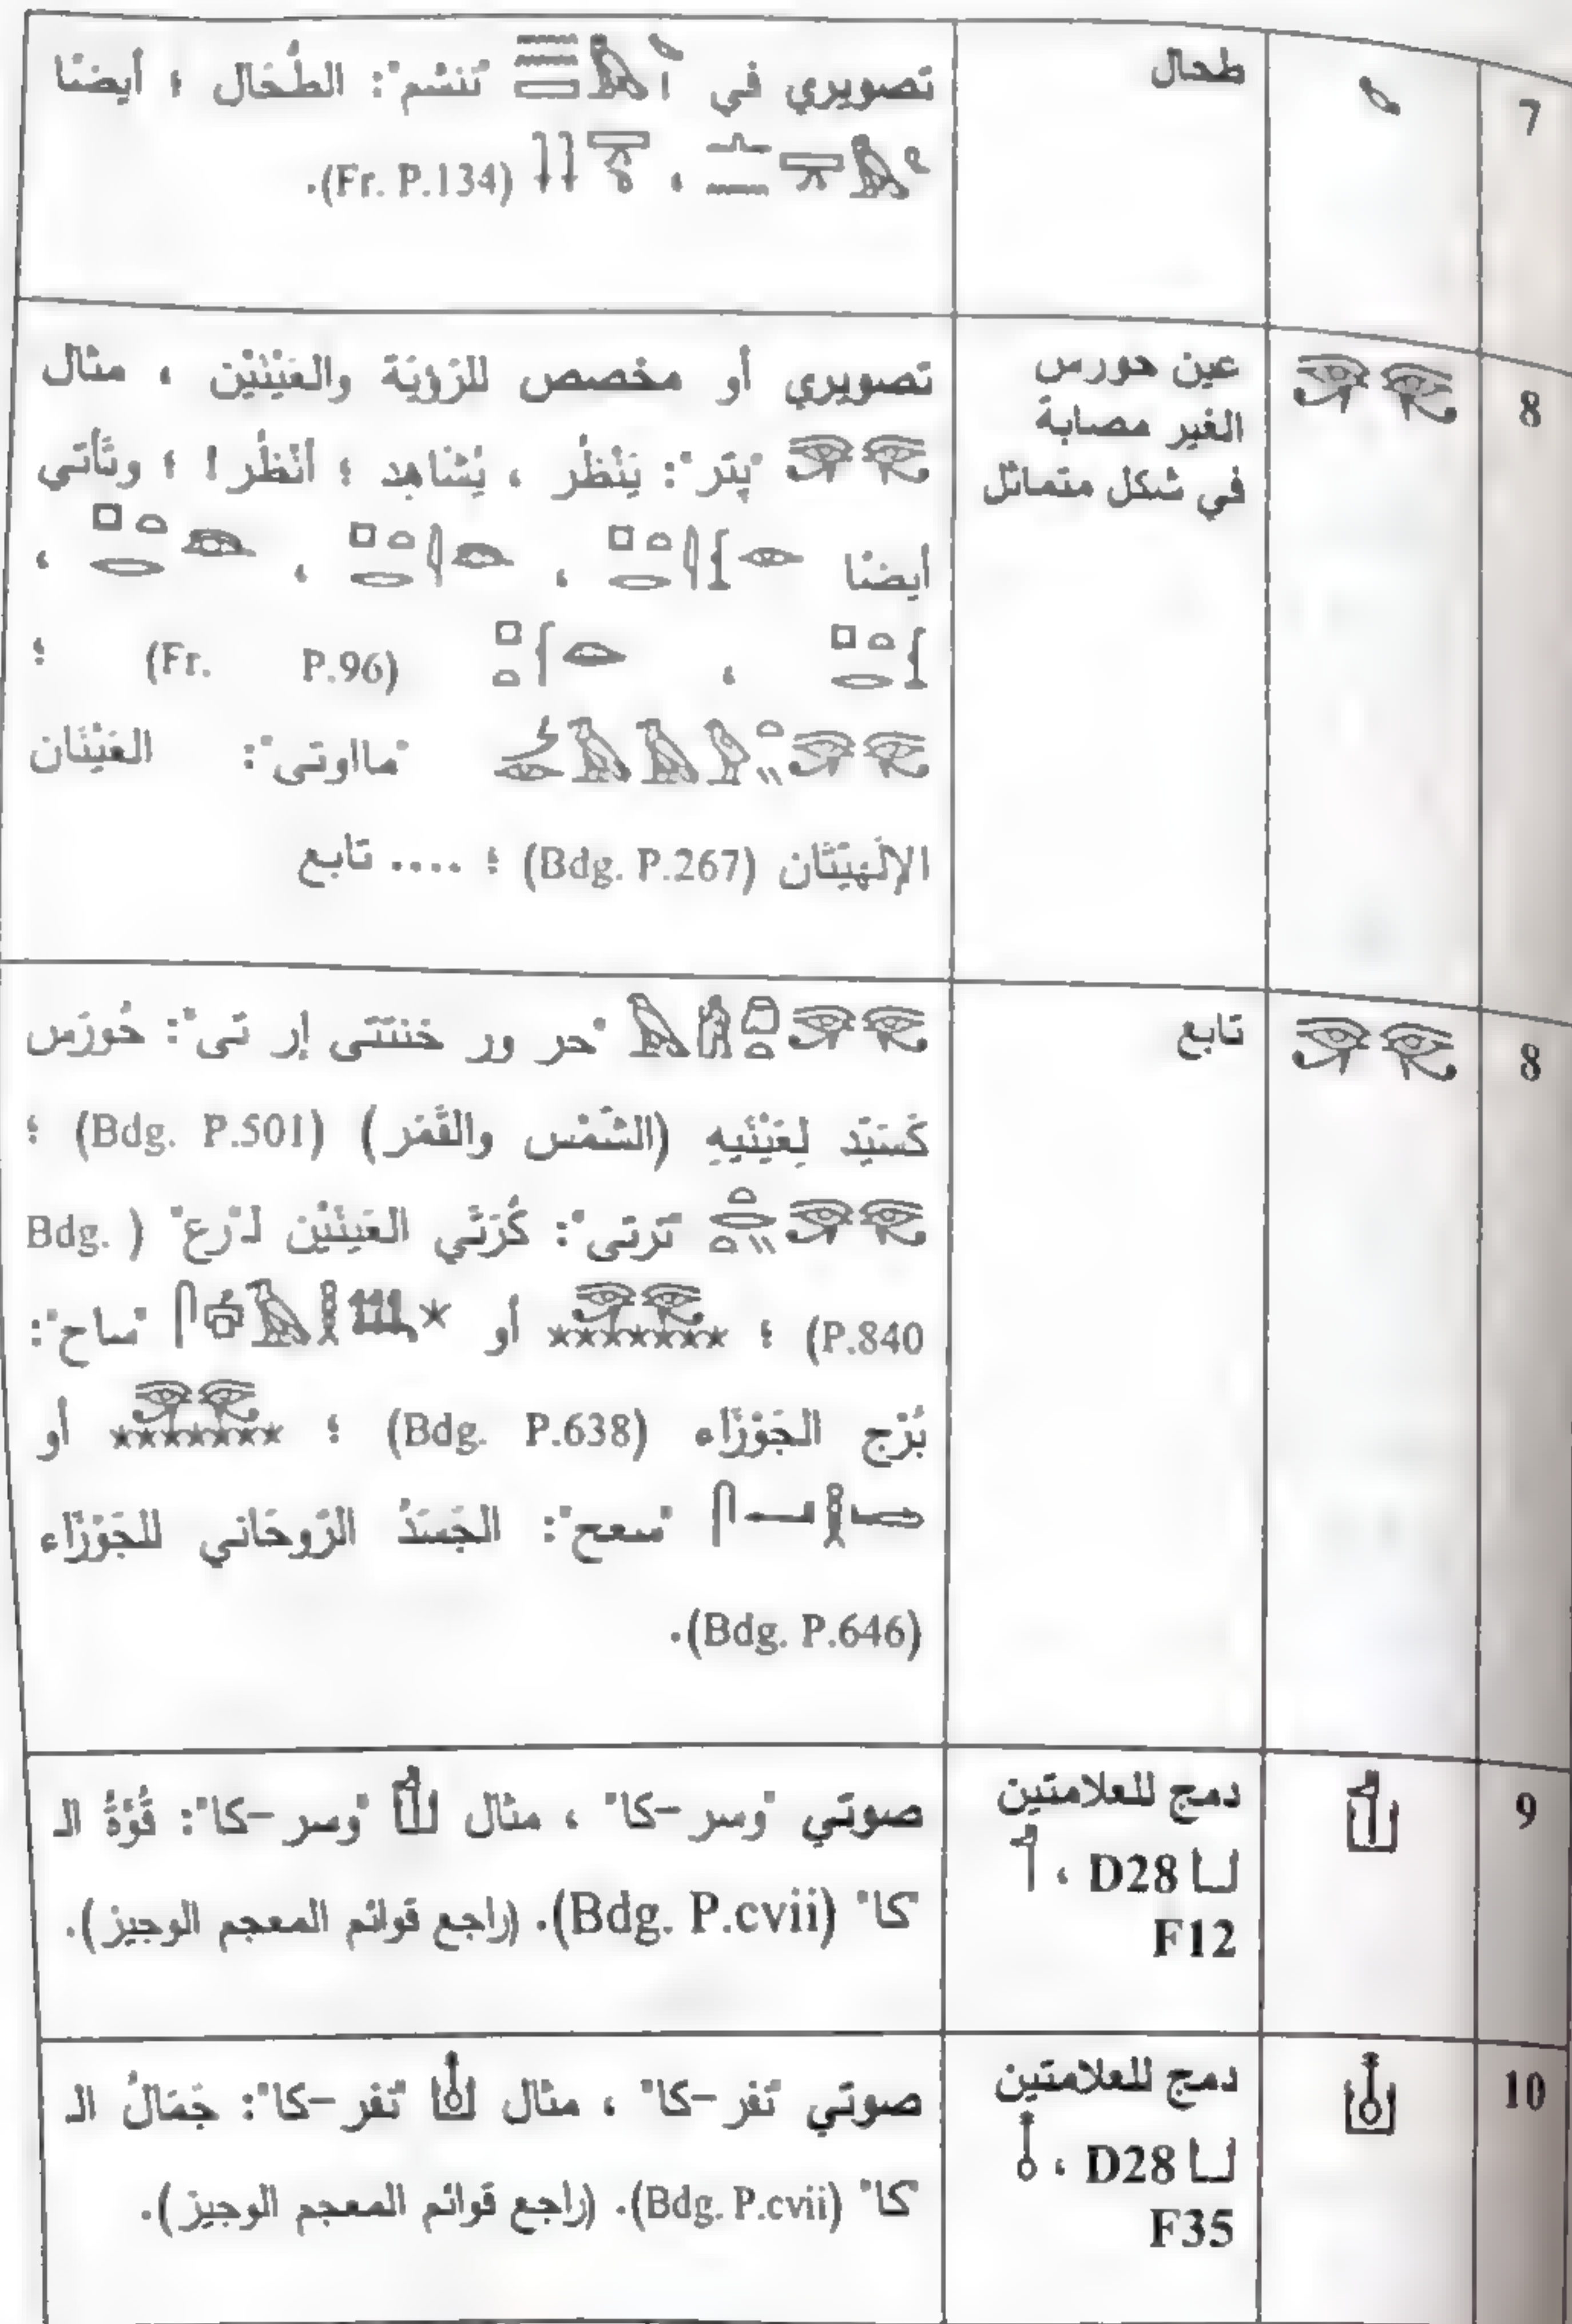 7
طحال
تصويري في "ننشم": الطُّحَال ؛ أيضًا
، (Fr. P.134).
8
عين حورس
الغير مصابة
في شكل متماثل
تصويري أو مخصص للرُؤيَة والعَيْنَيْن ، مثال
"پتر": يَنْظُر ، يُشَاهِد ؛ أنْظُر! ؛ وتَأتي
أيضًا ، ، ،
، (Fr. P.96) ؛
"مااوتى": العَيْنَان
الإلَهِيَتَان (Bdg. P.267) ؛ .... تابع
8
تابع
"حر ور خنتتى إر تى": حُورَس
كَسَيّد لِعَيْنَيهِ (الشَمْس والقَمَر) (Bdg. P.501) ؛
"ترتى": كُرَتَي العَيْنَيْن لـ"رع" ( Bdg.
P.840) ؛ أو "ساح":
بُرْج الجَوْزَاء (Bdg. P.638) ؛ أو
"سعح": الجَسَدُ الرَوحَاني للجَوْزَاء
(Bdg. P.646).
9
دمج للعلامتين
D28 ،
F12
صوتي "وسر-كا" ، مثال "وسر-كا": قُوَةُ الـ
"كا" (Bdg. P.cvii). (راجع قوائم المعجم الوجيز).
10
دمج للعلامتين
D28 ،
F35
صوتي "نفر-كا" ، مثال "نفر-كا": جَمَالُ الـ
"كا" (Bdg. P.cvii). (راجع قوائم المعجم الوجيز).